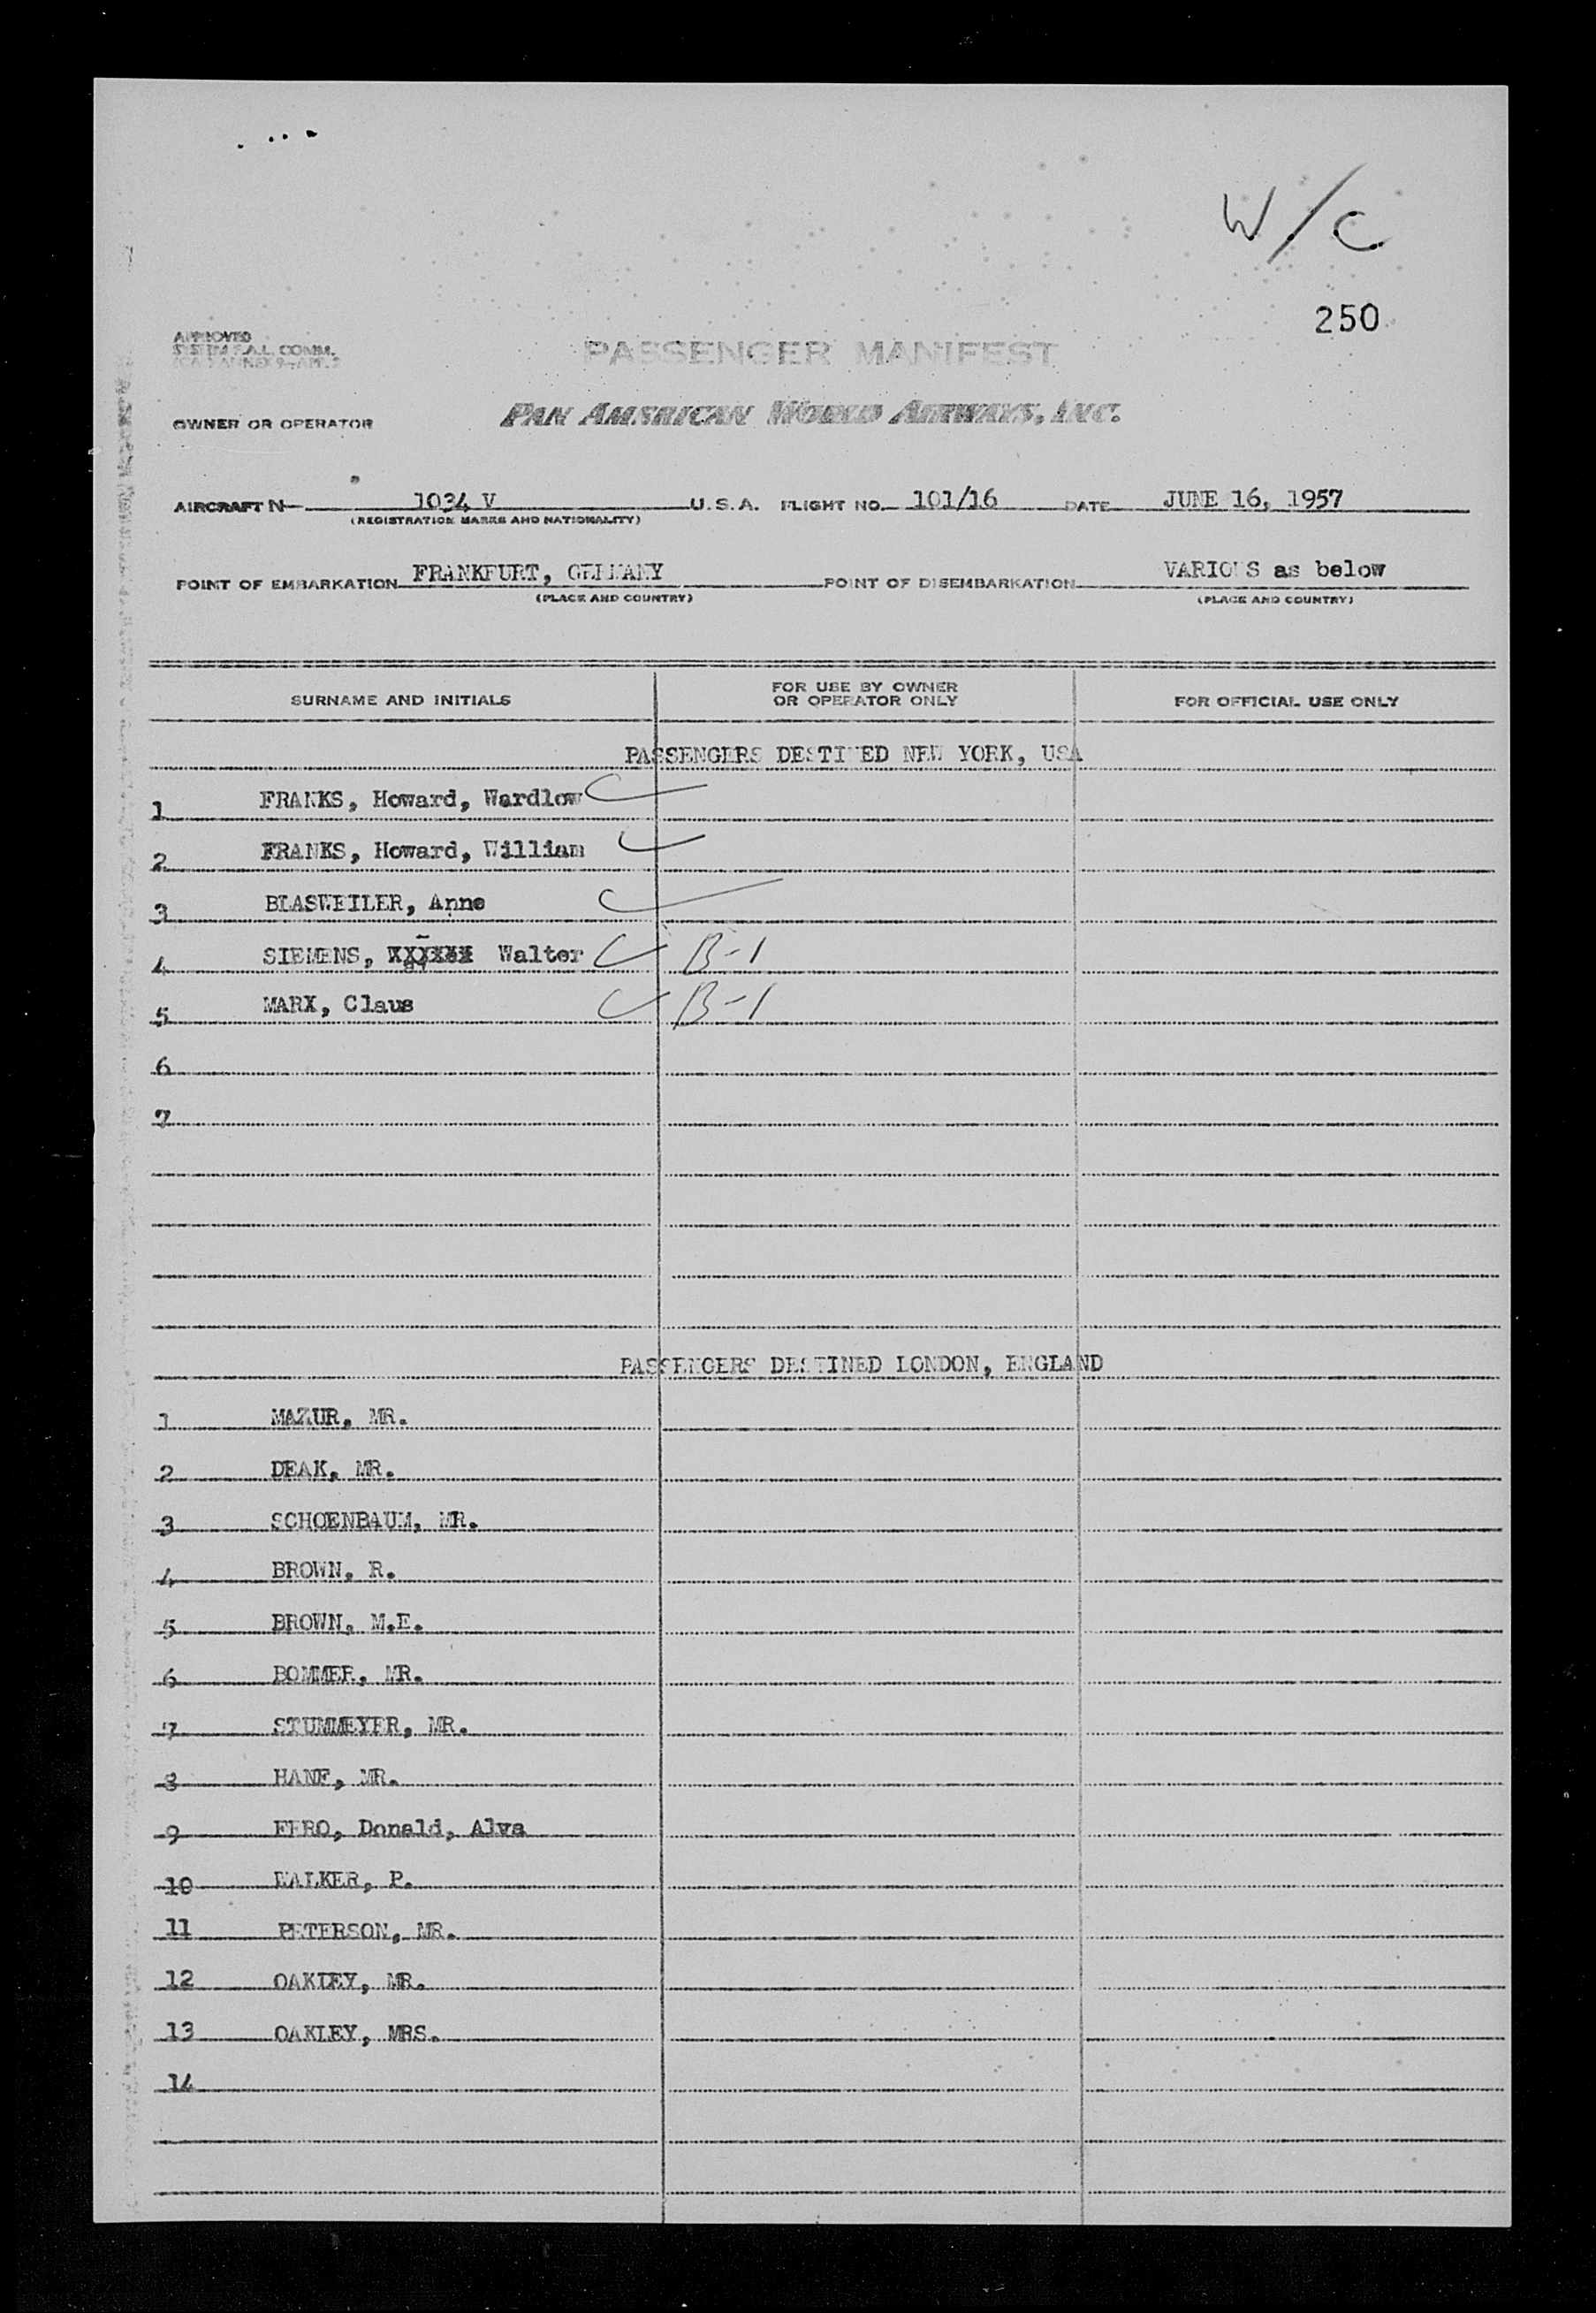 W/C
250
APPROVED
SYSTEM F.A.L. COMM.
PASSENGER MANIFEST
OWNER OR OPERATOR PAN AMERICAN WORLD AIRWAYS, INC.
AIRCRAFT N 1034 V U.S.A. FLIGHT NO. 101/16 DATE JUNE 16, 1957
(REGISTRATION MARKS AND NATIONALITY)
POINT OF EMBARKATION FRANKFURT, GERMANY POINT OF DISEMBARKATION VARIOUS as below
(PLACE AND COUNTRY) (PLACE AND COUNTRY)
SURNAME AND INITIALS FOR USE BY OWNER OR OPERATOR ONLY FOR OFFICIAL USE ONLY
PASSENGERS DESTINED NEW YORK, USA
1 FRANKS, Howard, Wardlow
2 FRANKS, Howard, William
3 BLASWEILER, Anne
4 SIEMENS, Walter B-1
5 MARX, Claus B-1
6
7
PASSENGERS DESTINED LONDON, ENGLAND
1 MAZUR, MR.
2 DEAK, MR.
3 SCHOENBAUM, MR.
4 BROWN, R.
5 BROWN, M.E.
6 BOMMER, MR.
7 STUMMEYER, MR.
8 HANF, MR.
9 FERO, Donald, Alva
10 WALKER, P.
11 PETERSON, MR.
12 OAKLEY, MR.
13 OAKLEY, MRS.
14